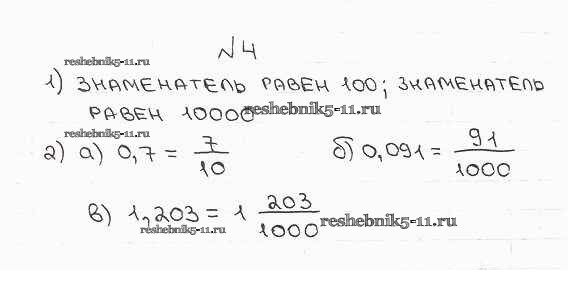 №4
reshebnik5-11.ru
1) ЗНАМЕНАТЕЛЬ РАВЕН 100; ЗНАМЕНАТЕЛЬ
РАВЕН 10000 reshebnik5-11.ru
reshebnik5-11.ru
2) а) 0,7 = 7/10 б) 0,091 = 91/1000
в) 1,203 = 1 203/1000 reshebnik5-11.ru
reshebnik5-11.ru